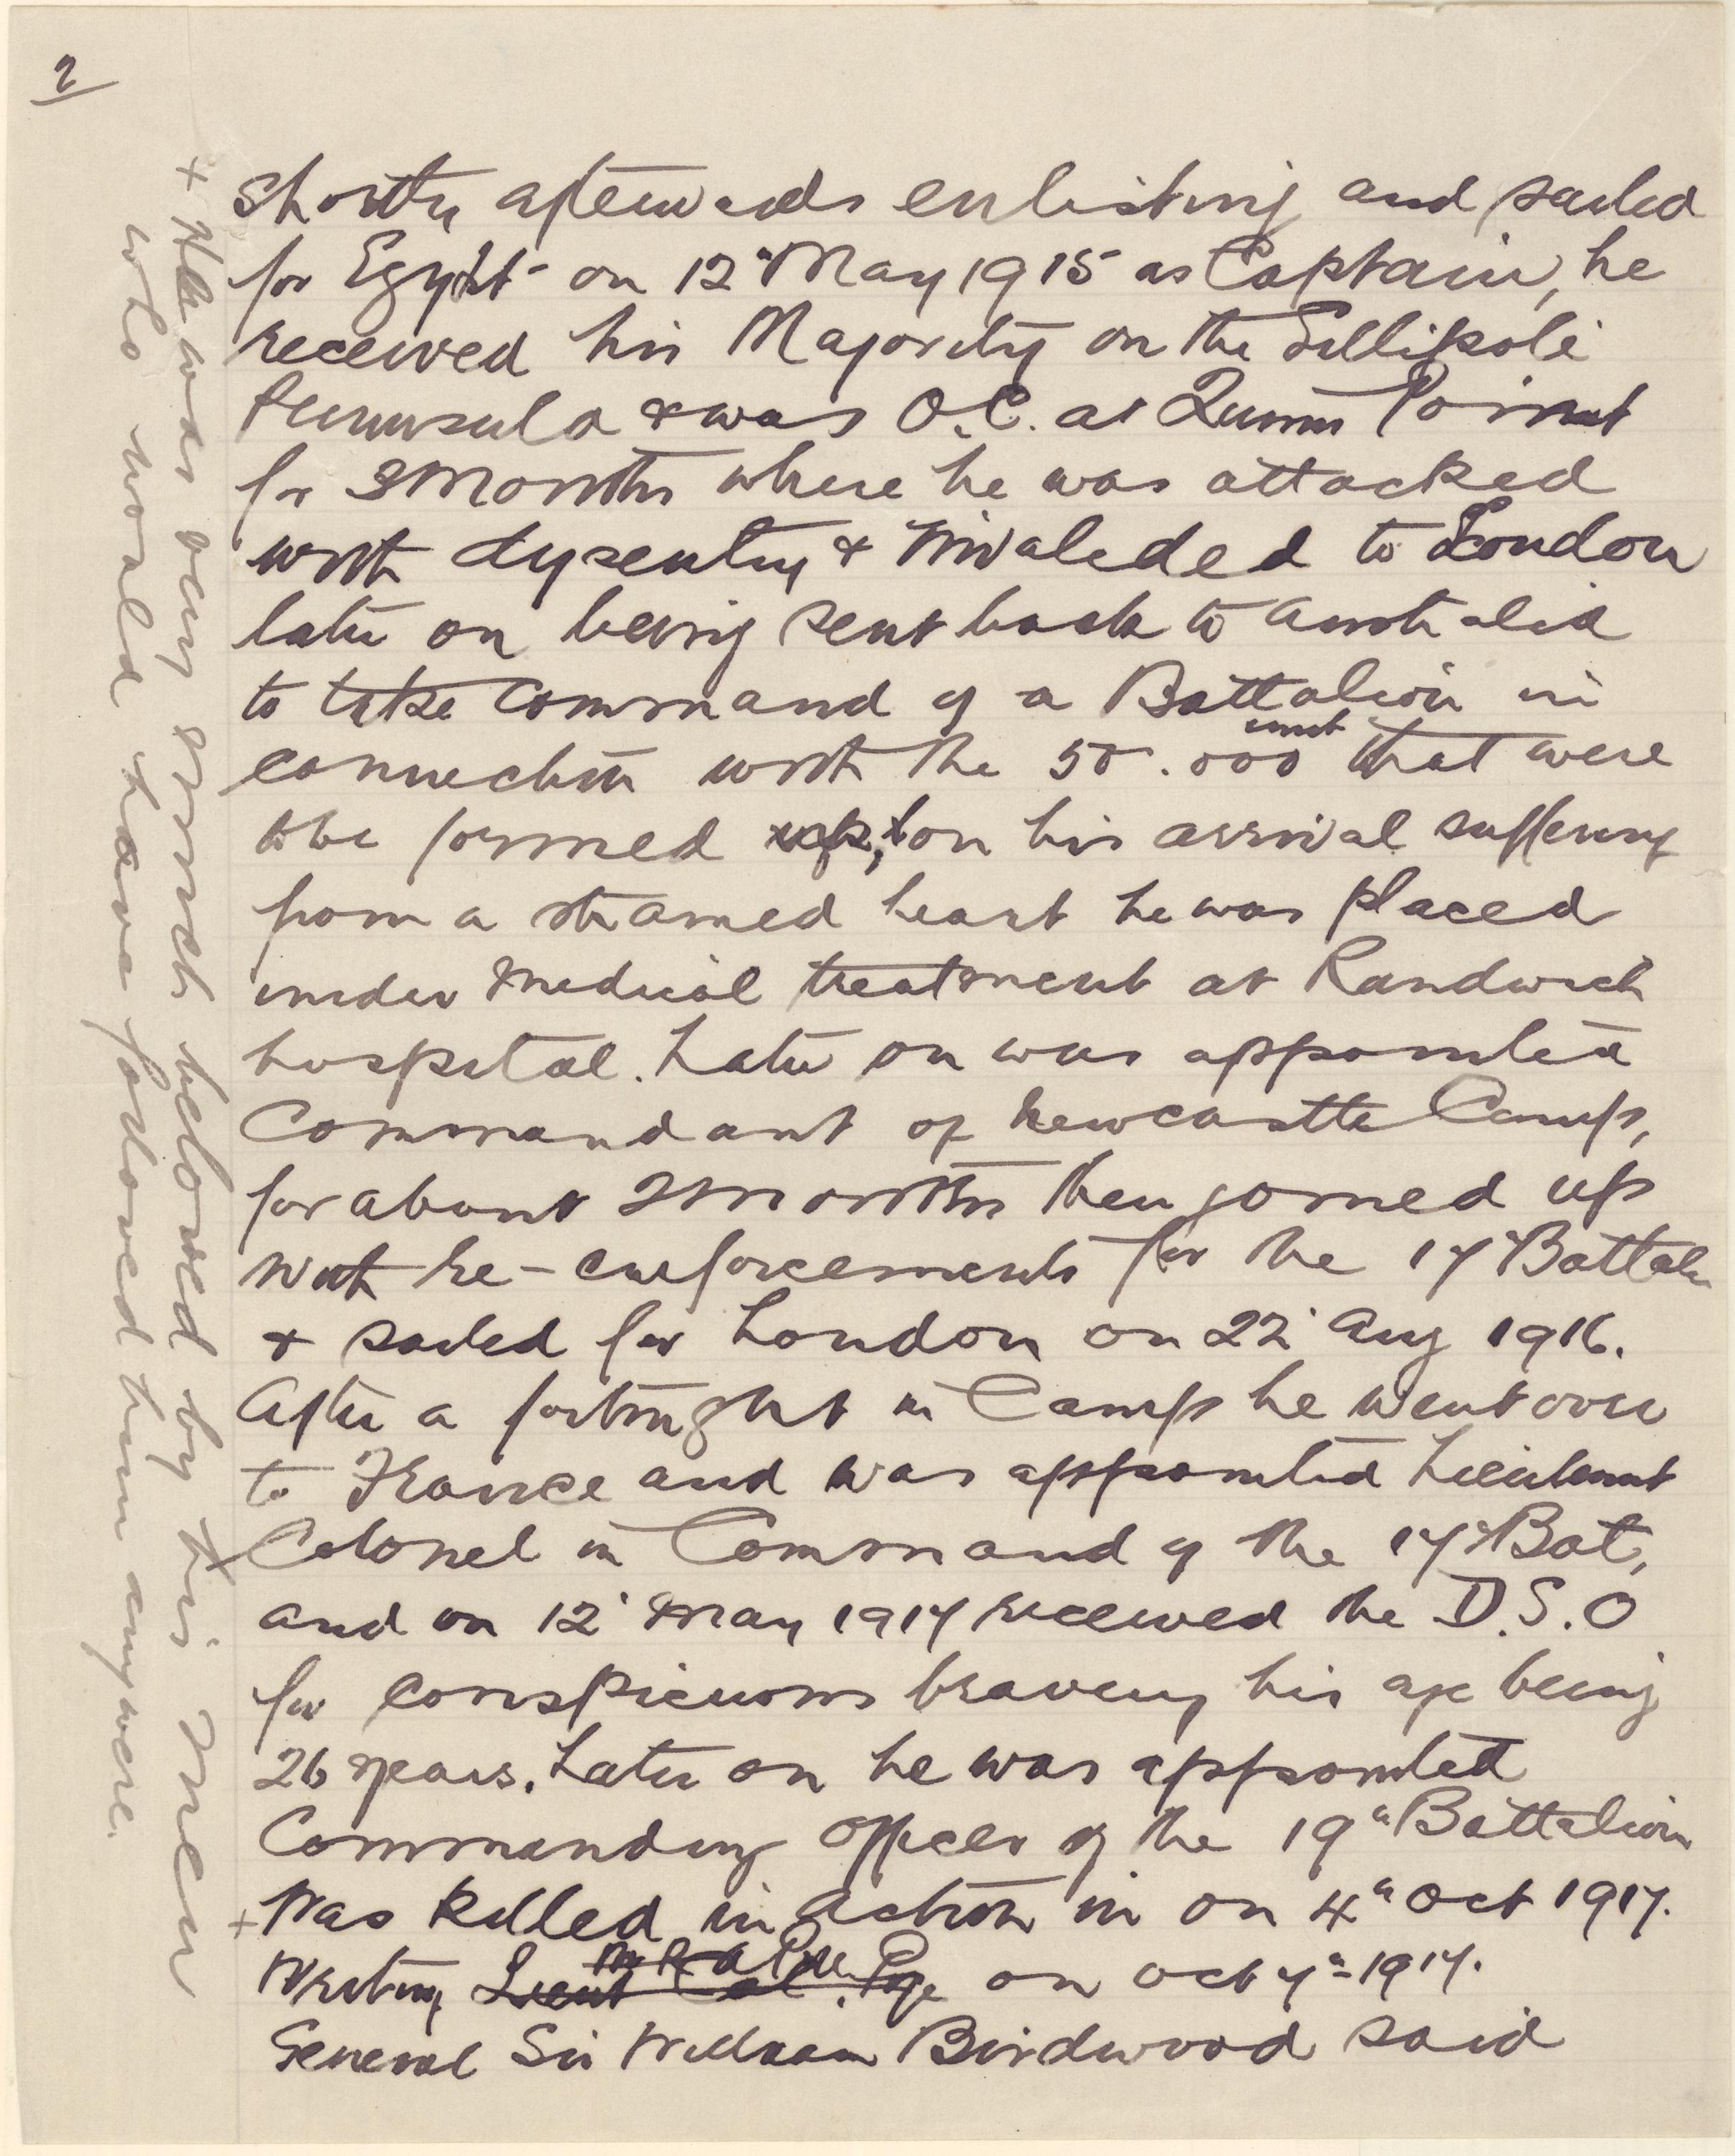 2
shortly afterwards enlisting and sailed
for Egypt on 12" May 1915 as Captain, he
received his Majority on the Gillipoli
Peninsula & was O.C. at Quinn Point
for 3 Months where he was attacked
with dysentry & Invalided to London
later on being sent back to Australia
to take Command of a Battalion in
unit
connection with the 50.000 that were
to be formed on his arrival suffering
from a strained heart he was placed
under Medical treatment at Randwick
hospital. Later on was appointed
Commandant of Newcastle Camp,
for about 2 Months then joined up
with re-enforcements for the 17" Battaln
& sailed for London on 22' Aug 1916.
After a fortnight in Camp he went over
to France and was appointed Lieutenant
Colonel in Command of the 17" Bat,
and on 12' May 1917 received the D.S.O
for conspicuous bravery his age being
26 years. Later on he was appointed
Commanding Officer of the 19" Battalion
+ Was killed in action in on 4" Oct 1917.
Writing Lieut Col. Page on Oct 7" - 1917.
General Sir William Birdwood said
+ He was very much beloved by his men
who would have followed him anywere.